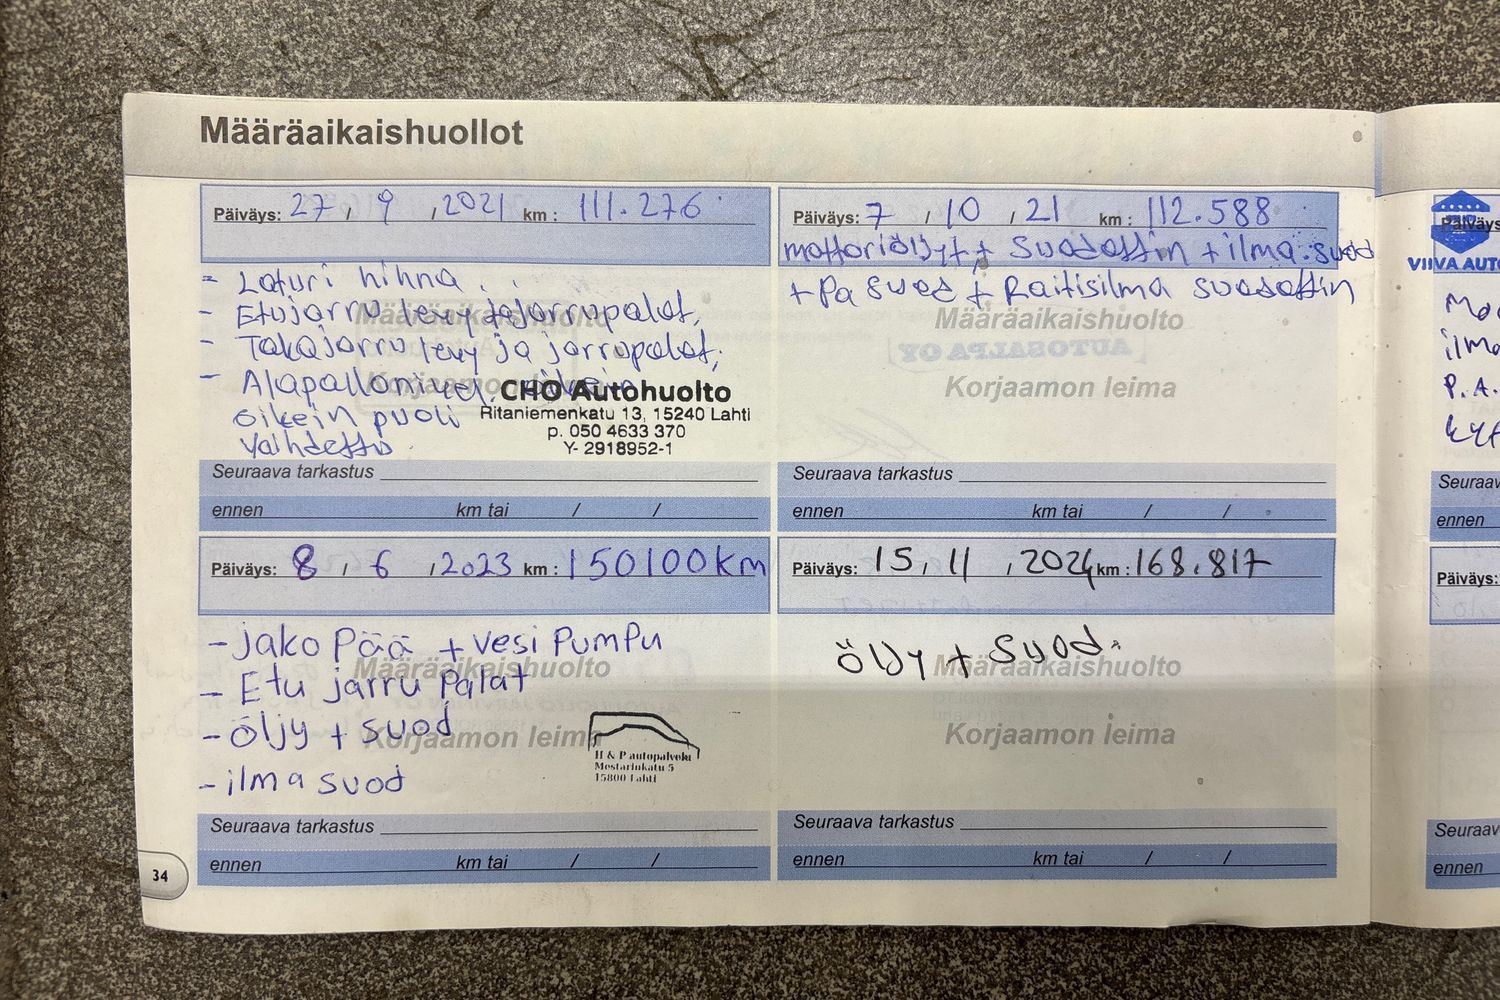 Määräaikaishuollot
Päiväys: 27 / 9 / 2021 km : 111.276
- Laturi hihna
- Etujarru levy ja jarrupalat,
- Takajarru levy ja jarrupalat,
- Alapallonivel
oikein puoli
Vaihdettu
Määräaikaishuolto
Korjaamon
CHO Autohuolto
Ritaniemenkatu 13, 15240 Lahti
p. 050 4633 370
Y- 2918952-1
Seuraava tarkastus
ennen km tai / /
Päiväys: 7 / 10 / 21 km : 112.588
mottoriöljyt + suodattin + ilma.suod
+ Pa suod + Raitisilma suodattin
Määräaikaishuolto
AUTOSALPA OY
Korjaamon leima
Seuraava tarkastus
ennen km tai / /
Päiväys: 8 / 6 / 2023 km : 150100km
- jako Pää + vesi Pumpu
Määräaikaishuolto
- Etu jarru Palat
- öljy + suod
Korjaamon leima
- ilma suod
H & P autopalvelu
Mestarinkatu 5
15800 Lahti
Seuraava tarkastus
ennen km tai / /
Päiväys: 15 / 11 / 2024 km : 168.817
öljy + suod.
Määräaikaishuolto
Korjaamon leima
Seuraava tarkastus
ennen km tai / /
34
Päiväys
VIIVA AUTO
P.A.
Seuraav
ennen
Päiväys:
Seuraav
ennen